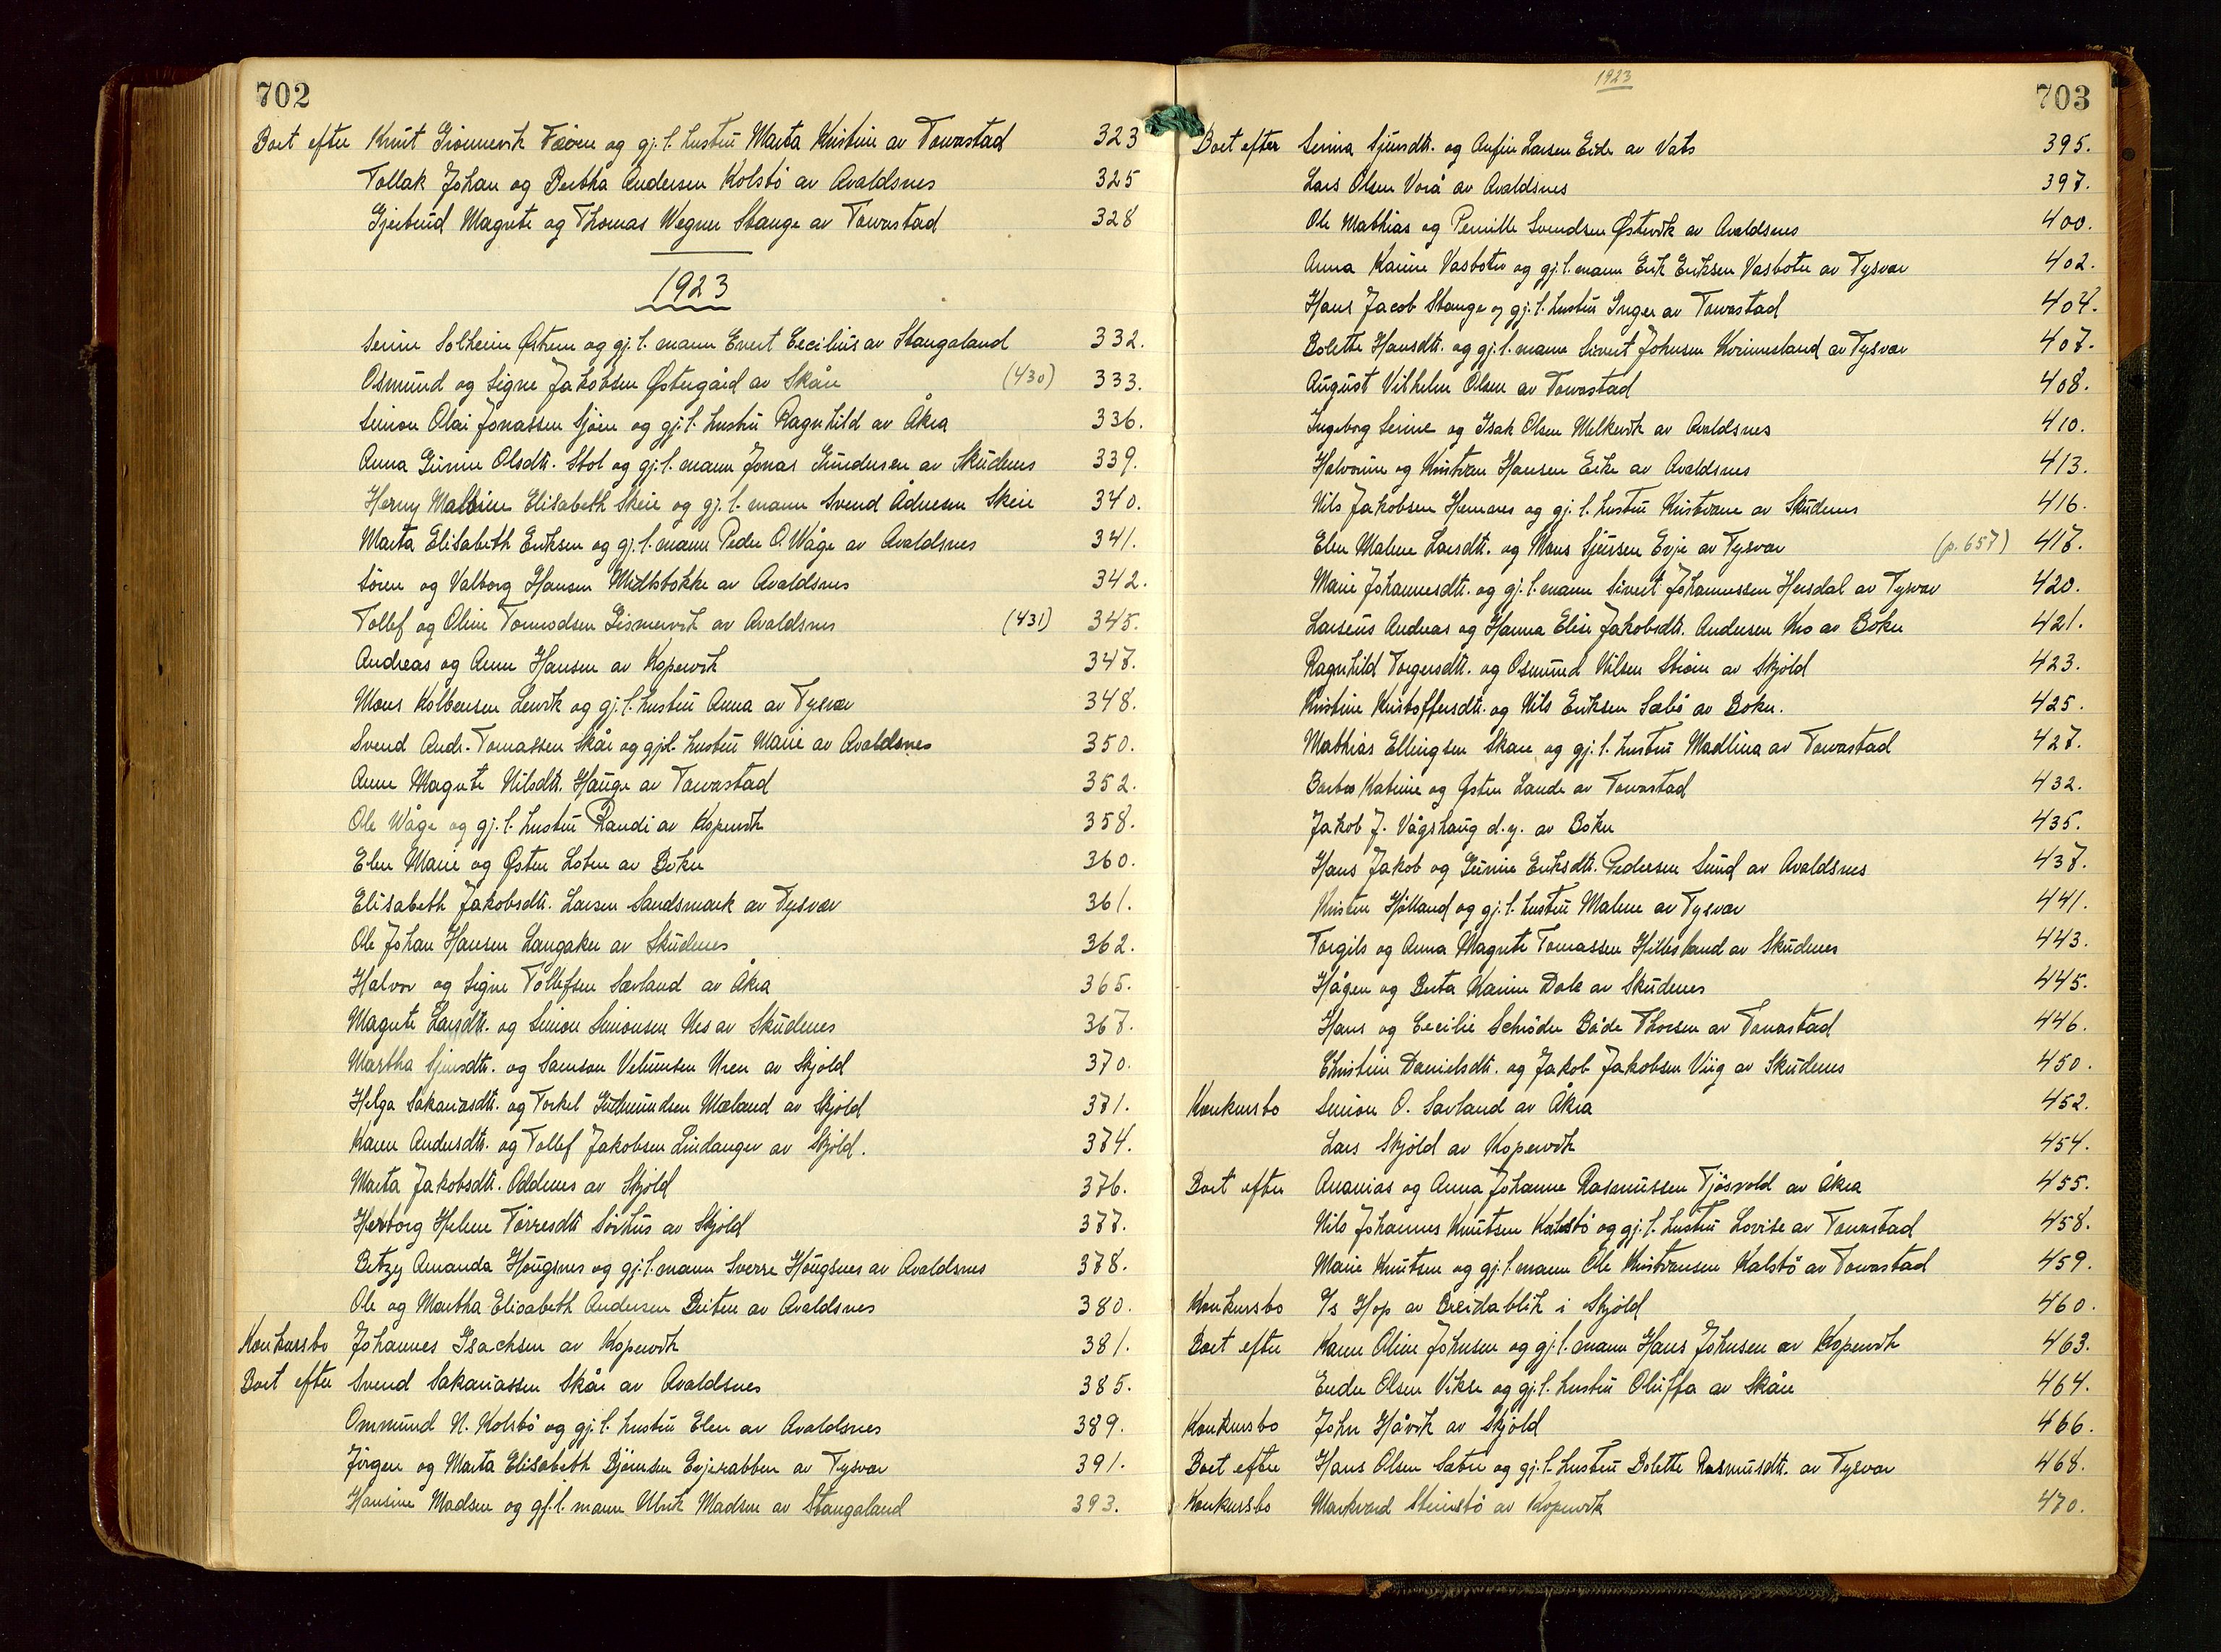 702
Boet efter Knut Grönnevik Fæøen og gj.l. hustru Marta Kristine av Torvastad 323
Tollak Johan og Bertha Andersen Kolstö av Avaldsnes 325
Gjertrud Magrete og Thomas Wegner Stange av Torvastad 328
1923
Serine Solheim Østrem og gj.l. mann Evert Cecilius av Stangaland 332.
Osmund og Signe Jakobsen Østergård av Skåre (430) 333.
Simon Olai Jonassen Sjöen og gj.l. hustru Ragnhild av Åkra 336.
Anna Gurine Olsdtr. Stol og gj.l. mann Jonas Gundersen av Skudenes 339.
Herny Malbine Elisabeth Skeie og gj.l. mann Svend Ådnesen Skeie 340.
Marta Elisabeth Eriksen og gj.l. mann Peder O. Våge av Avaldsnes 341.
Sören og Valborg Hansen Midtstokke av Avaldsnes 342.
Tollef og Oline Tormodsen Gismervik av Avaldsnes (431) 345.
Andreas og Anne Hansen av Kopervik 347.
Mons Kolbensen Lervik og gj.l. hustru Anna av Tysvær 348.
Svend Andr. Tomassen Skår og gj.l. hustru Marie av Avaldsnes 350.
Anne Magrete Nilsdtr. Hauge av Torvastad 352.
Ole Våge og gj.l. hustru Randi av Kopervik 358.
Elen Marie og Østen Loten av Bokn 360.
Elisabeth Jakobsdtr. Larsen Sandsmark av Tysvær 361.
Ole Johan Hansen Langaker av Skudenes 362.
Halvor og Signe Tollefsen Sævland av Åkra 365.
Magrete Larsdtr. og Simon Simonsen Nes av Skudenes 367.
Martha Sjursdtr. og Samson Velumsen Uren av Skjold 370.
Helga Sakariasdtr. og Torkel Gudmundsen Mæland av Skjold 371.
Karen Andersdtr. og Tollef Jakobsen Lindanger av Skjold. 374.
Marta Jakobsdtr. Oddenes av Skjold 376.
Herborg Helene Törresdtr Sörhus av Skjold 377.
Betzy Amanda Högsnes og gj.l. mann Sverre Högsnes av Avaldsnes 378.
Ole og Martha Elisabeth Andersen Bråten av Avaldsnes 380.
Konkursbo Johannes Isachsen av Kopervik 381.
Boet efter Svend Sakariassen Skår av Avaldsnes 385.
Ommund N. Kolstö og gj.l. hustru Elen av Avaldsnes 389.
Jörgen og Marta Elisabeth Björnsen Evjerabben av Tysvær 391.
Hansine Madsen og gj.l. mann Ulrik Madsen av Stangaland 393.
1923
703
Boet efter Serina Sjursdtr. og Anfin Larsen Eide av Vats 395.
Lars Olsen Vorå av Avaldsnes 397.
Ole Mathias og Pernille Svendsen Østevik av Avaldsnes 400.
Anna Karine Vasbotn og gj.l. mann Erik Eriksen Vasbotn av Tysvær 402.
Hans Jacob Stange og gj.l. hustru Inger av Torvastad 404.
Bolette Hansdtr. og gj.l. mann Sivert Johnsen Kvinnesland av Tysvær 407.
August Vilhelm Olsen av Torvastad 408.
Ingeborg Serine og Isak Olsen Melkevik av Avaldsnes 410.
Halvorine og Kristian Hansen Eike av Avaldsnes 413.
Nils Jakobsen Hemnes og gj.l. hustru Kristiane av Skudenes 416.
Elen Malene Larsdtr. og Mons Sjursen Evje av Tysvær (p. 657) 417.
Marie Johannesdtr. og gj.l. mann Sivert Johannessen Hersdal av Tysvær 420.
Larsens Andreas og Hanna Elise Jakobsdtr. Andersen Kro av Bokn 421.
Ragnhild Torgersdtr. og Osmund Nilsen Straum av Skjold 423.
Kristine Kristoffersdtr. og Nils Eriksen Sæbö av Bokn. 425.
Mathias Ellingsen Skare og gj.l. hustru Madlina av Torvastad 427.
Barbro Katrine og Østen Lande av Torvastad 432.
Jakob J. Vågshaug d.y. av Bokn 435.
Hans Jakob og Gurine Eriksdtr. Pedersen Sund av Avaldsnes 437.
Kristen Hjölland og gj.l. hustru Malene av Tysvær 441.
Torgils og Anna Magrete Tomassen Hillesland av Skudenes 443.
Hågen og Berta Karine Dale av Skudenes 445.
Hans og Cecilie Schröder Både Thorsen av Torvastad 446.
Christine Danielsdtr. og Jakob Jakobsen Viig av Skudenes 450.
Konkursbo Simon O. Sævland av Åkra 452.
Lars Skjold av Kopervik 454.
Boet efter Ananias og Anna Johanne Rasmussen Tjösvold av Åkra 455.
Nils Johannes Knutsen Kalstö og gj.l. hustru Lovise av Torvastad 458.
Marie Knutsen og gj.l. mann Ole Kristiansen Kalstö av Torvastad 459.
Konkursbo A/s Hop av Breidablik i Skjold 460.
Boet efter Karen Oline Johnsen og gj.l. mann Hans Johnsen av Kopervik 463.
Endre Olsen Vikse og gj.l. hustru Oluffa av Skåre 464.
Konkursbo John Håvik av Skjold 466.
Boet efter Hans Olsen Sætre og gj.l. hustru Bolette Rasmusdtr. av Tysvær 468.
Konkursbo Markvard Steinstö av Kopervik 470.